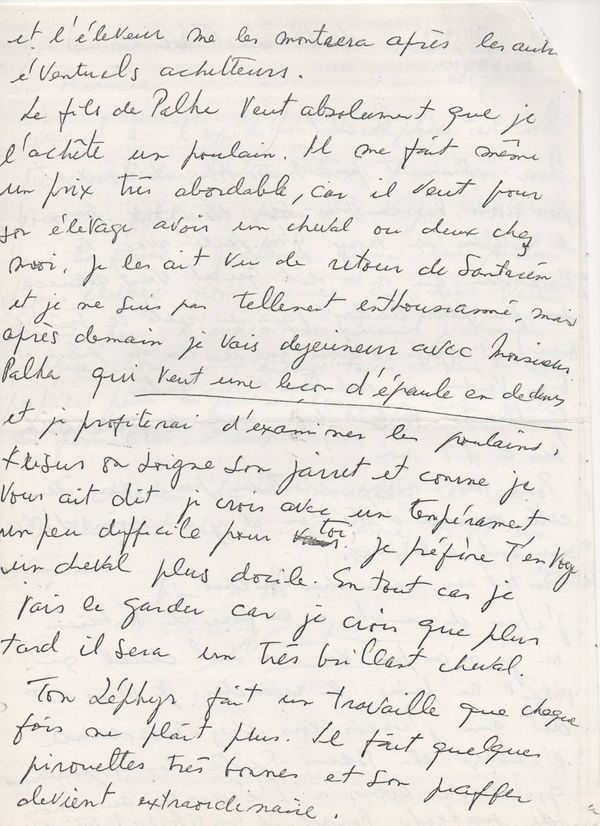 et l'éleveur me les montrera après les autr
éventuels achetteurs.
Le fils de Palha veut absolument que je
l'achète un poulain. Il me fait même
un prix très abordable, car il veut pour
son élevage avoir un cheval ou deux chez
moi. Je les ait vu de retour de Santarém
et je ne suis pas tellement enthousiasmé, mais
après demain je vais dejeuneur avec Monsieur
Palha qui veut une leçon d'épaule en dedans
et je profiterai d'examiner les poulains.
on soigne son jarret et comme je
vous ait dit je crois avec un tempérament
un peu difficile pour toi, je préfère t'envoyer
un cheval plus docile. En tout cas je
vais le garder car je crois que plus
tard il sera un très brillant cheval.
Ton Zéphyr fait un travaille que chaque
fois me plait plus. Il fait quelques
pirouettes très bonnes et son piaffer
devient extraordinaire.